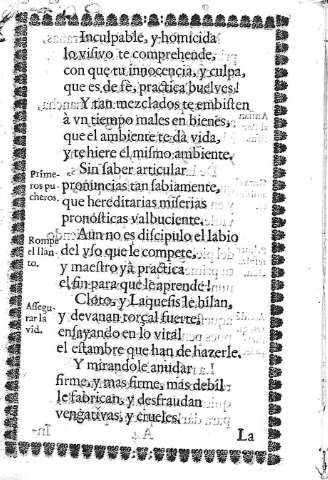 Inculpable, y homicida
lo visivo te comprehende,
con que tu innocencia, y culpa,
que es de fè, practica buelves!
Y tan mezclados te embisten
à vn tiempo males en bienes,
que el ambiente te dà vida,
y te hiere el mismo ambiente.
Prime-
ros pu-
cheros.
Sin saber articular
pronuncias tan sabiamente,
que hereditarias miserias
pronosticas valbuciente.
Rompe
el llan-
to.
Aun no es discipulo el labio
del vso que le compete,
y maestro ya practica
el fin para que le aprende!
Assegu-
rar la
vid.
Cloto, y Laquesis le hilan,
y devanan torçal fuerte,
ensayando en lo vital
el estambre que han de hazerle.
Y mirandole anudar
firme, y mas firme, mas debil
le fabrican, y desfraudan
vengativas, y crueles.
La